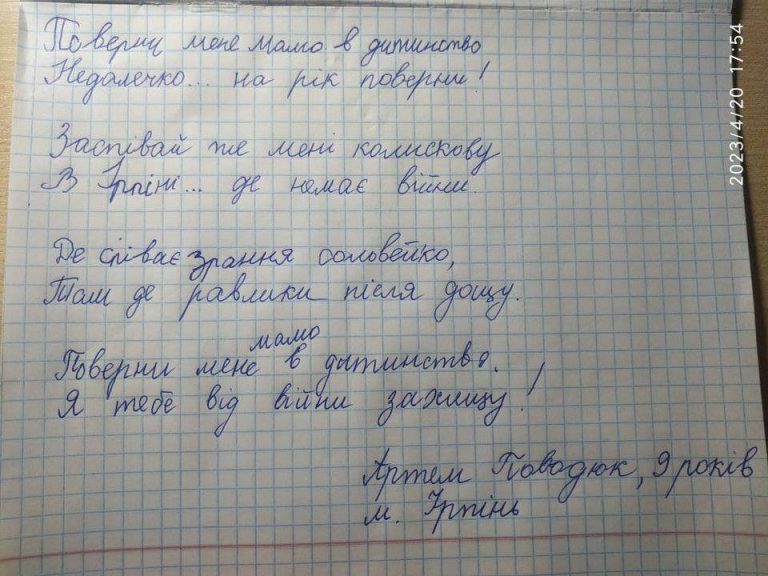 Поверни мене мамо в дитинство
Недалечко... на рік поверни!
Заспівай же мені колискову
В Ірпіні... де немає війни.
Де співає зрання соловейко,
Там де равлики після дощу.
Поверни мене мамо в дитинство.
Я тебе від війни захищу!
Артем Поводюк, 9 років
м. Ірпінь
2023/4/20 17:54